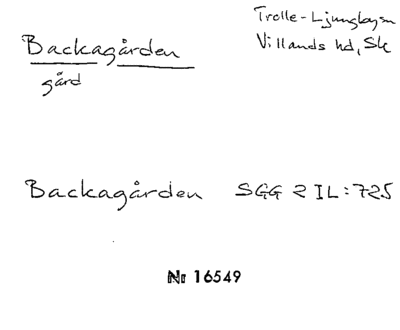 Backagården
gård
Trolle-Ljungbyn
Villands hd, Sk
Backagården SGG 2 IL:725
Nr 16549